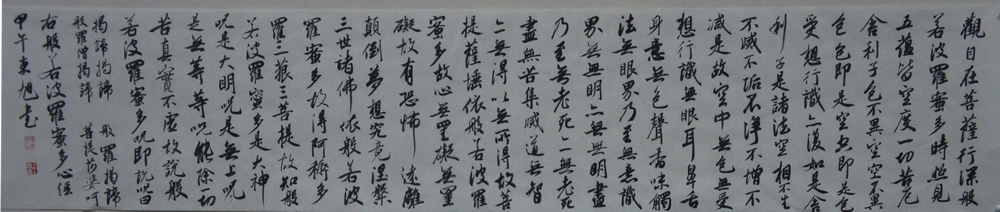 觀自在菩薩行深般
若波羅蜜多時照見
五蘊皆空度一切苦厄
舍利子色不異空空不異
色色即是空空即是色
受想行識亦復如是舍
利子是諸法空相不生
不滅不垢不淨不增不
減是故空中無色無受
想行識無眼耳鼻舌
身意無色聲香味觸
法無眼界乃至無意識
界無無明亦無無明盡
乃至無老死亦無老死
盡無苦集滅道無智
亦無得以無所得故菩
提薩埵依般若波羅
蜜多故心無罣礙無罣
礙故有恐怖遠離
顛倒夢想究竟涅槃
三世諸佛依般若波
羅蜜多故得阿耨多
羅三藐三菩提故知般
若波羅蜜多是大神
呪是大明呪是無上呪
是無等等呪能除一切
苦真實不虛故說般
若波羅蜜多呪即說呪曰
揭諦揭諦 般羅揭諦
般羅僧揭諦 菩提薩婆呵
右般若波羅蜜多心經
甲午東旭書